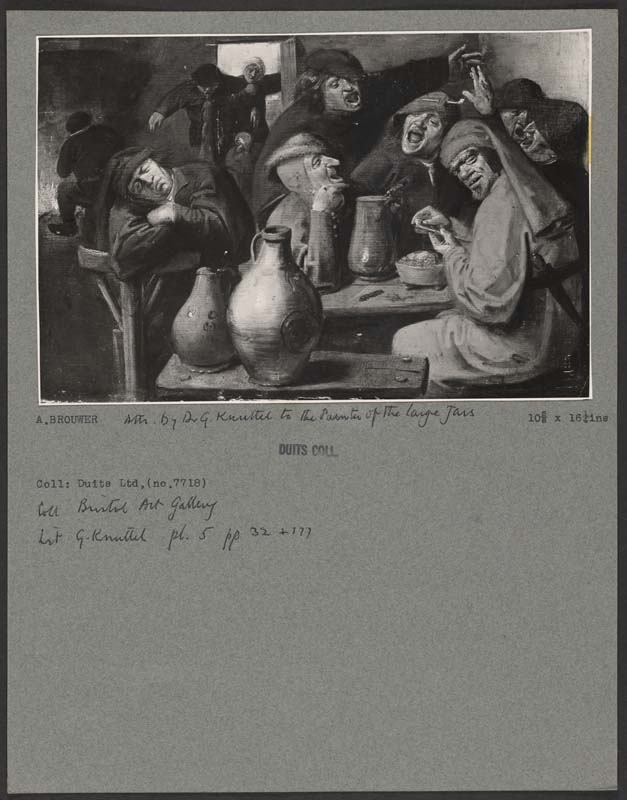 A.BROUWER Attr. by Dr G. Knuttel to the Painter of the large Jars 10⅝ x 16¼ins
DUITS COLL.
Coll: Duits Ltd,(no.7718)
Coll Bristol Art Gallery
Lit G. Knuttel pl. 5 pp 32 + 177